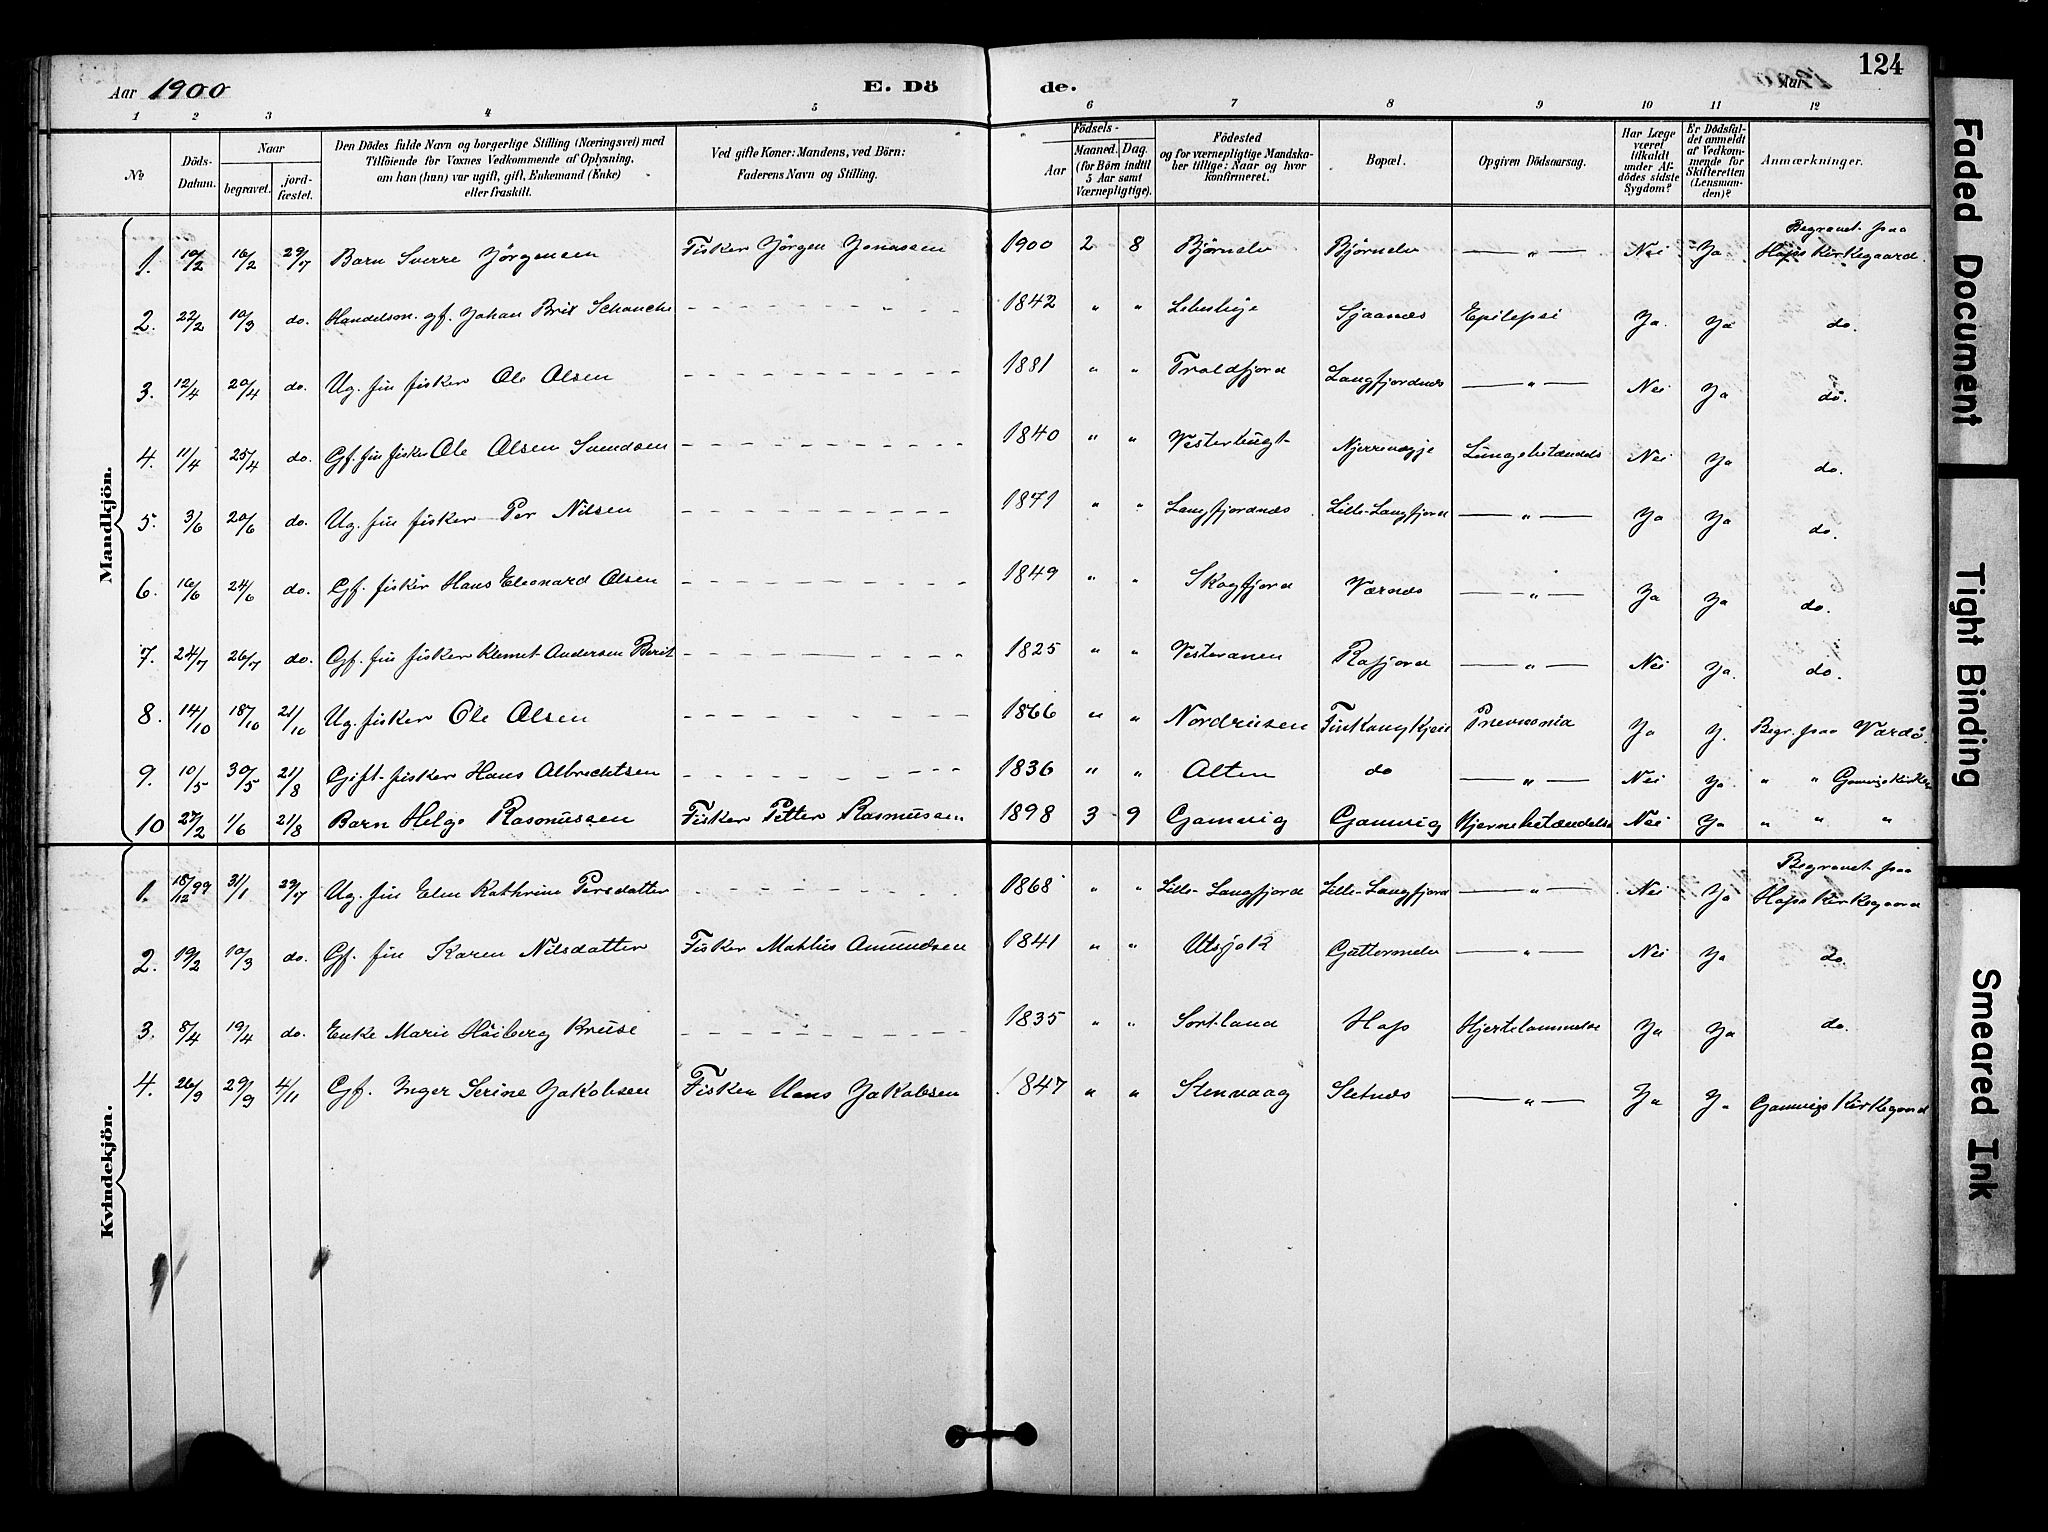 124
Aar 1900 E. Dö de. Aar 1900
1 2 3 4 5 6 7 8 9 10 11 12
No
Döds-Datum.
Naar begravet. jord-fæstet.
Den Dödes fulde Navn og borgerlige Stilling (Næringsvei) med
Tilföiende for Voxnes Vedkommende af Oplysning,
om han (hun) var ugift, gift, Enkemand (Enke)
eller fraskilt.
Ved gifte Koner: Mandens, ved Börn:
Faderens Navn og Stilling.
Födsels-
Aar Maaned. Dag.
(for Börn indtil
5 Aar samt
Værnepligtige).
Födested
og for værnepligtige Mandska-
ber tillige: Naar og hvor
konfirmeret.
Bopæl.
Opgiven Dödsaarsag.
Har Læge
været
tilkaldt
under Af-
dödes sidste
Sygdom?
Er Dödsfal-
det anmeldt
af Vedkom-
mende for
Skifteretten
(Lensman-
den)?
Anmærkninger.
Mandkjön.
1. 10/2 16/2 29/7 Barn Sverre Jörgensen Fisker Jörgen Jonassen 1900 2 8 Bjørnelv Bjørnelv — " — Nei Ja Begravet paa Hops Kirkegaard.
2. 22/2 10/3 do. Handelsm. gf. Johan Brix Schanche 1842 " " Lebesbye Sjaanæs Epilepsi Ja. Ja do.
3. 12/4 20/4 do. Ug. fin fisker Ole Olsen 1881 " " Troldfjord Langfjordnæs — " — Nei Ja do.
4. 11/4 25/4 do. Gf. fin fisker Ole Olsen Svendsen 1840 " " Vesterbugt Njerrevagje Lungebetændels Nei Ja do.
5. 3/6 20/6 do. Ug. fin fisker Per Nilsen 1871 " " Langfjordnæs Lille-Langfjord — " — Ja Ja do.
6. 16/6 24/6 do. Gf. fisker Hans Eleonard Olsen 1849 " " Skogfjord Værnæs — " — Ja Ja do.
7. 24/7 26/7 do. Gf. fin fisker Klemet Andersen Berit 1825 " " Vesteranen Rafjord — " — Nei Ja. do.
8. 14/10 18/10 21/10 Ug. fisker Ole Olsen 1866 " " Nordreisen Finkongkjeil Pnevmonia Ja J. Begr. paa Vardö.
9. 10/5 30/5 21/8 Gift fisker Hans Albrechtsen 1836 " " Alten do — " — Nei Ja " " Gamvigs Kirkeg
10 27/2 1/6 21/8 Barn Helge Rasmussen Fisker Petter Rasmussen 1898 3 9 Gamvig Gamvig Hjernebetændelse Nei Ja " " "
Kvindekjön.
1. 18/12 99 31/1 29/7 Ug. fin Elen Kathrine Persdatter 1868 " " Lille-Langfjord Lille-Langfjord — " — Nei Ja Begravet paa Hops Kirkegaard
2. 19/2 10/3 do. Gf. fin Karen Nilsdatter Fisker Mathis Amundsen 1841 " " Utsjok Guttormelv — " — Nei Ja do.
3. 8/4 19/4 do. Enke Marie Höiberg Kruse 1835 " " Sortland Hop Hjertelammelse Ja Ja do.
4. 26/9 29/9 4/11 Gf. Inger Serine Jakobsen Fisker Hans Jakobsen 1847 " " Stenvaag Sletnæs — " — Ja Ja Gamvigs Kirkegaard
Faded Document
Tight Binding
Smeared Ink